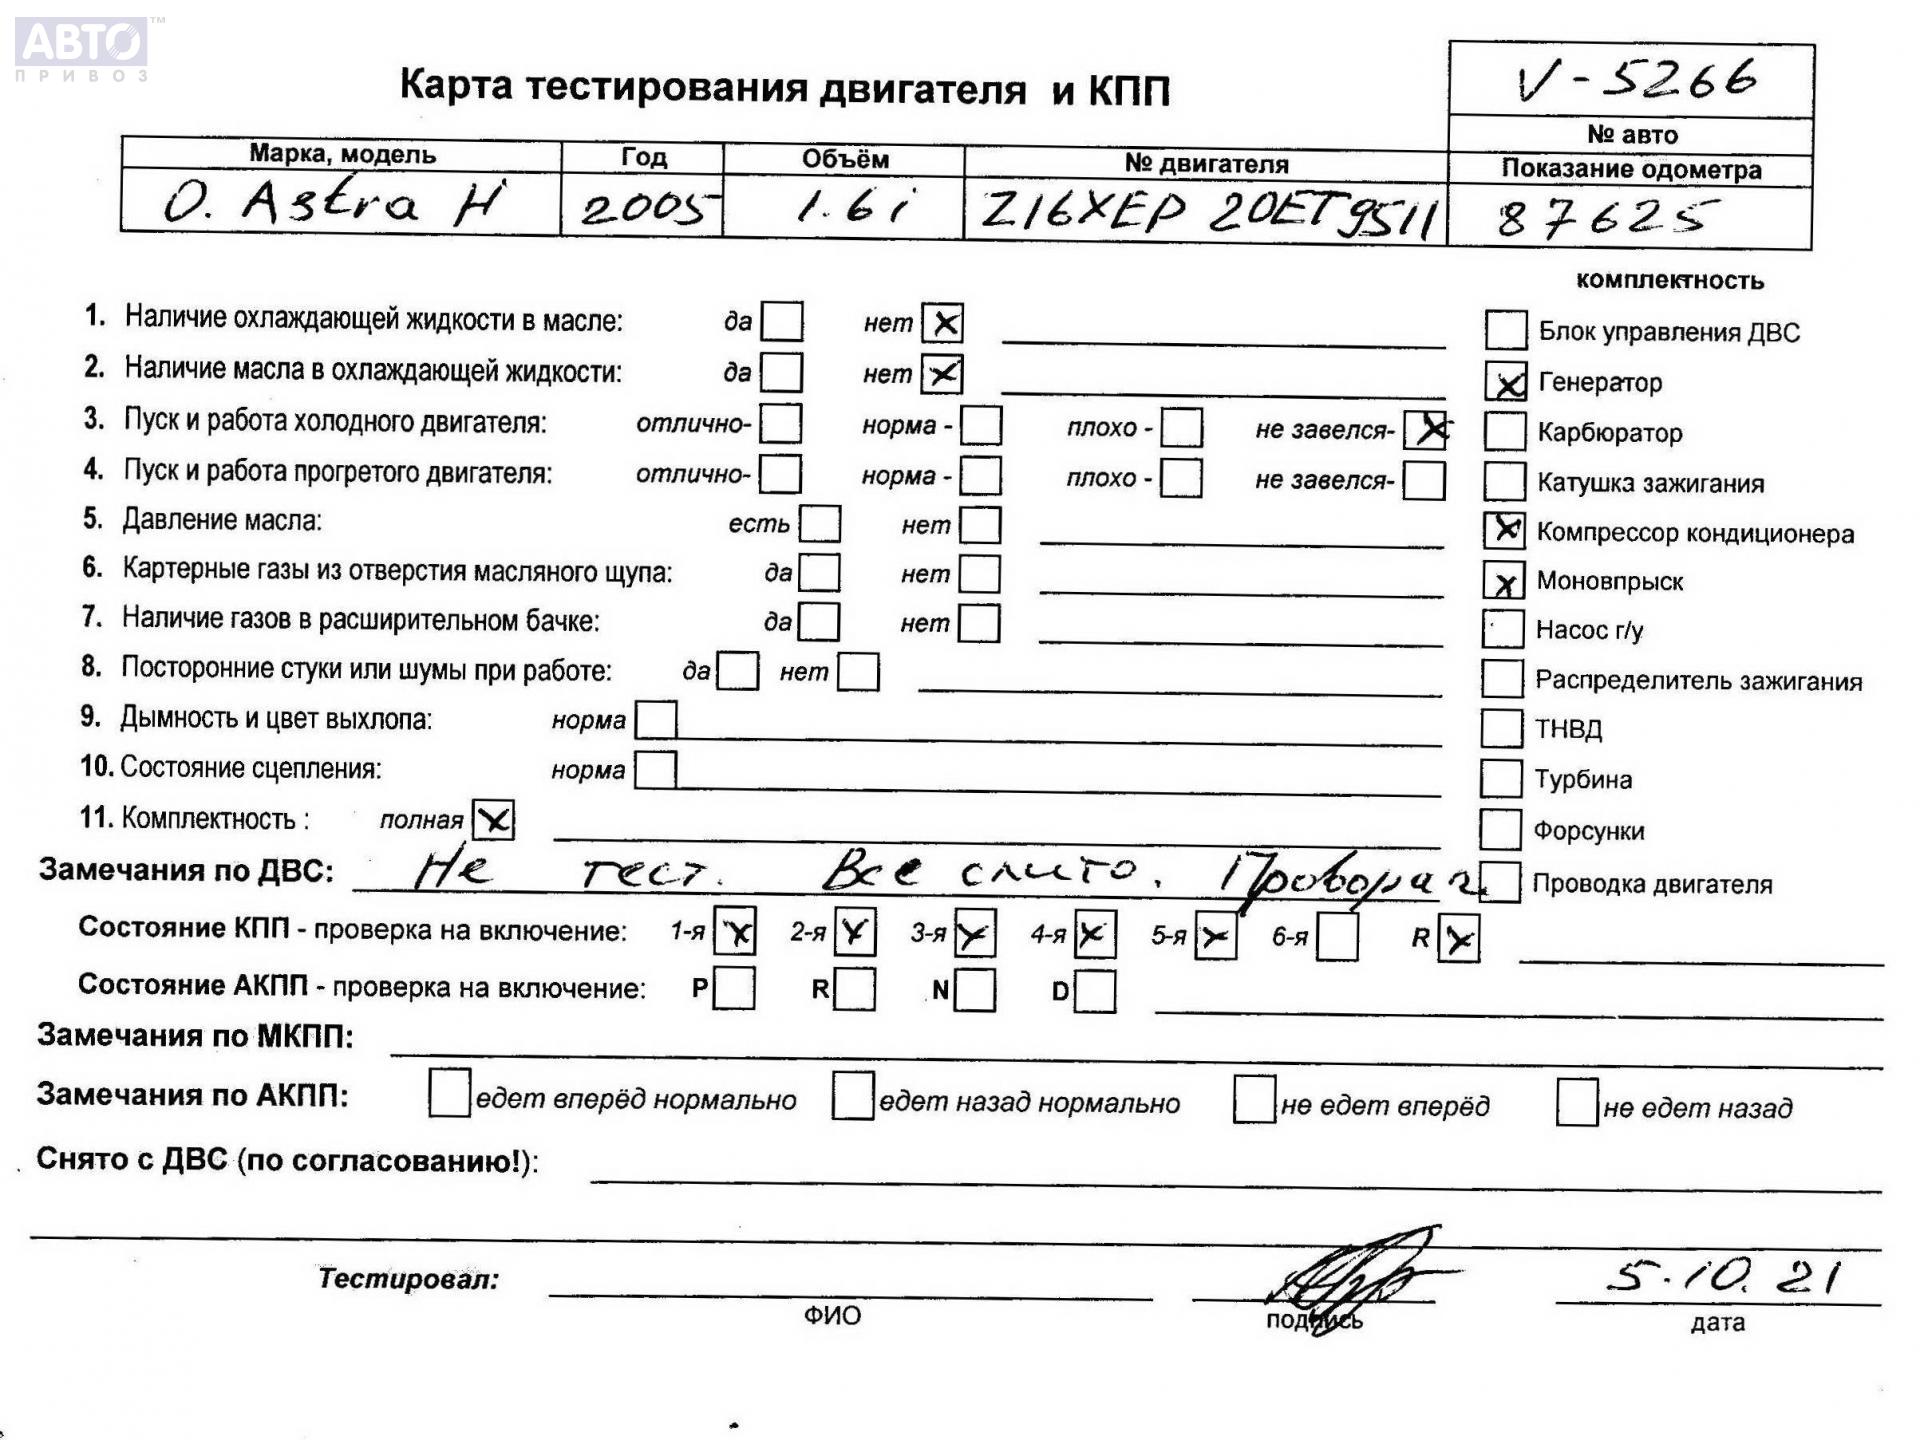 АВТО™
ПРИВОЗ
Карта тестирования двигателя и КПП
V-5266
№ авто
Марка, модель Год Объём № двигателя Показание одометра
O. Astra H 2005 1.6i Z16XEP 20ET9511 87625
комплектность
1. Наличие охлаждающей жидкости в масле: да нет X
Блок управления ДВС
2. Наличие масла в охлаждающей жидкости: да нет X
X Генератор
3. Пуск и работа холодного двигателя: отлично- норма - плохо - не завелся- X
Карбюратор
4. Пуск и работа прогретого двигателя: отлично- норма - плохо - не завелся-
Катушка зажигания
5. Давление масла: есть нет
X Компрессор кондиционера
6. Картерные газы из отверстия масляного щупа: да нет
X Моновпрыск
7. Наличие газов в расширительном бачке: да нет
Насос г/у
8. Посторонние стуки или шумы при работе: да нет
Распределитель зажигания
9. Дымность и цвет выхлопа: норма
ТНВД
10. Состояние сцепления: норма
Турбина
11. Комплектность : полная X
Форсунки
Замечания по ДВС: Не тест. Все слито.
Проводка двигателя
Состояние КПП - проверка на включение: 1-я X 2-я X 3-я X 4-я X 5-я X 6-я R X
Состояние АКПП - проверка на включение: P R N D
Замечания по МКПП:
Замечания по АКПП: едет вперёд нормально едет назад нормально не едет вперёд не едет назад
Снято с ДВС (по согласованию!):
Тестировал: 5.10.21
ФИО подпись дата